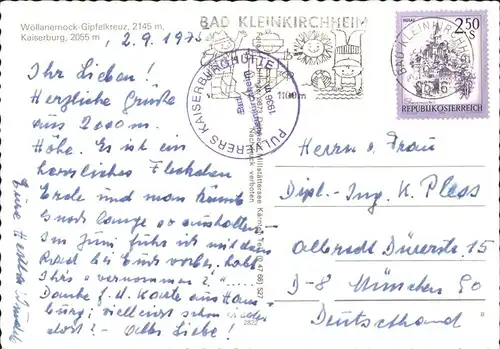 Wöllanernock-Gipfelkreuz, 2145 m,
Kaiserburg, 2055 m
2.9.1975
Ihr Lieben!
Herzliche Grüße
aus 2000 m
Höhe. Es ist ein
herrliches Fleckchen
Erde und man könnte
lange so aushalten!
Im Juni fuhr ich mit dem
Rad bei Euch vorbei, habt
Ihr's "vernommen"?
Danke f. d. Karte aus Ham
burg; vielleicht schon wieder
dort? - Alles Liebe!
Eure
BAD KLEINKIRCHHEIM
1100 m
PULVERERS KAISERBURGHÜTTE
1936 m
Nachdruck verboten
2822
BAD KLEINKIRCHHEIM
9546
2.50
S
REPUBLIK ÖSTERREICH
Herrn u. Frau
Dipl.-Ing. K. Pless
Albrecht Dürerstr. 15
D-8 München 90
Deutschland